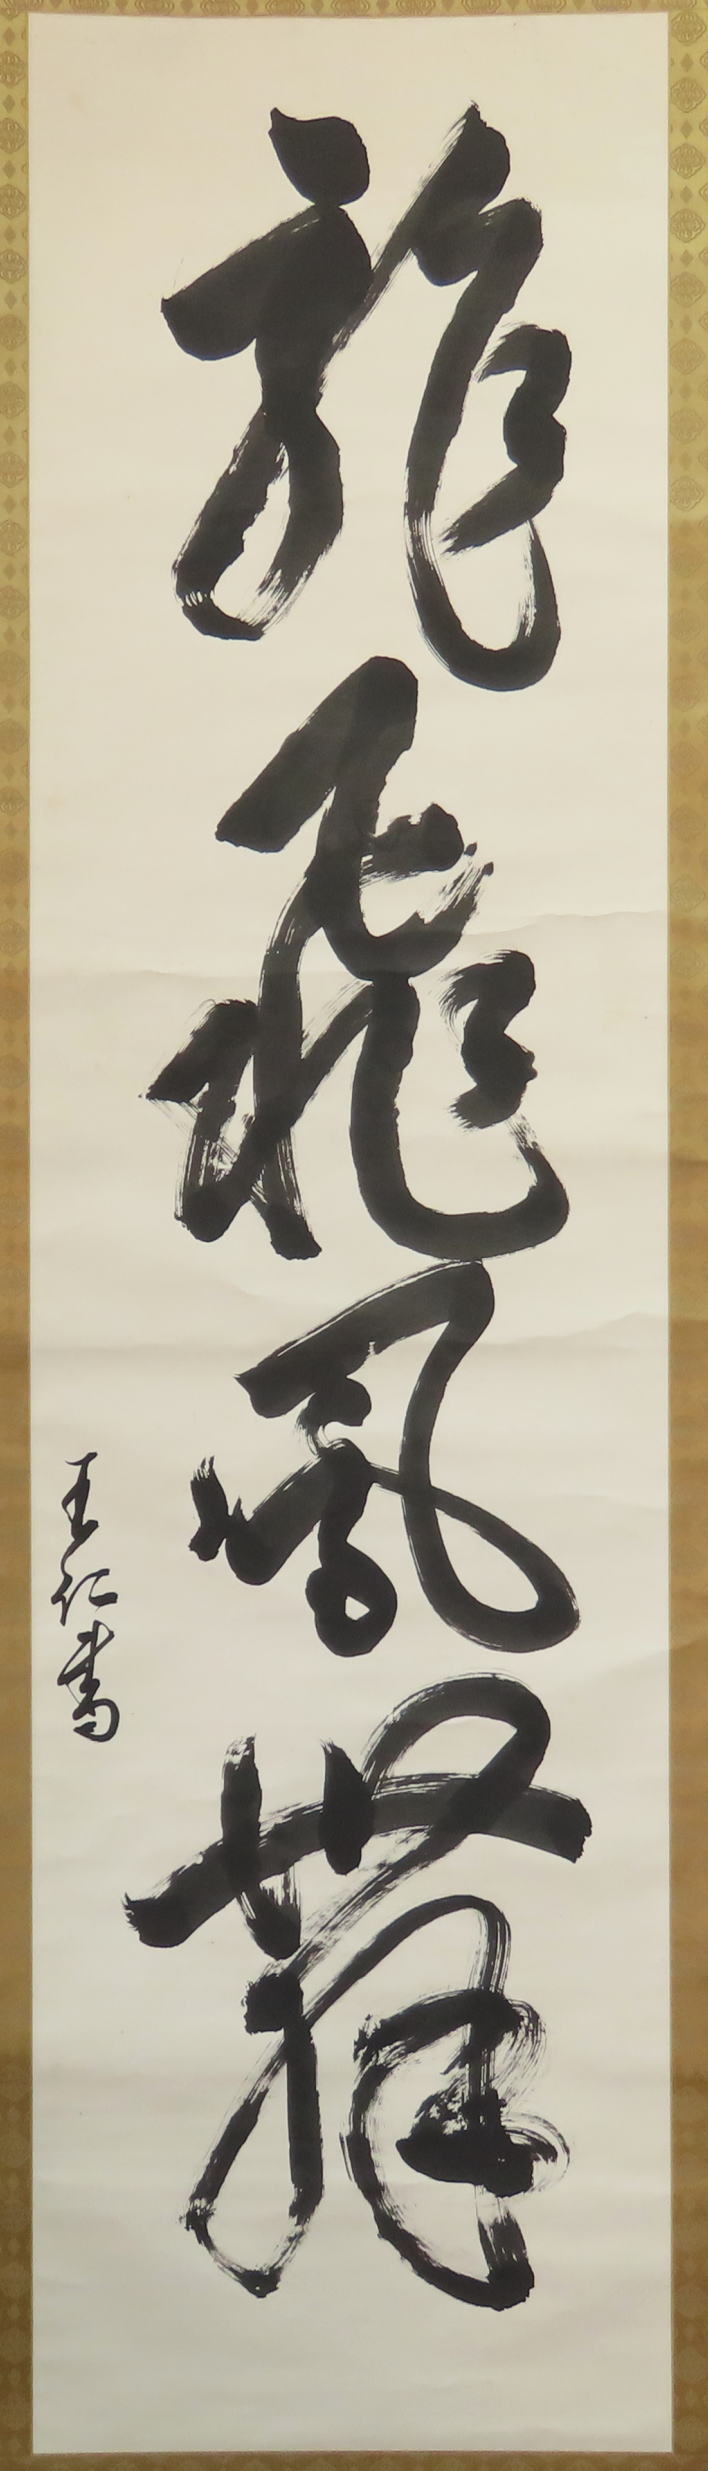 龍飛鳳舞
王仁書